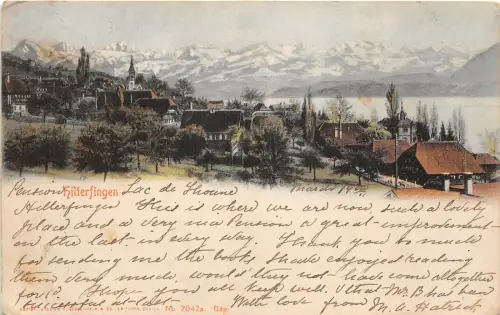 Hilterfingen
Pension Lac de Thoune March 14th
Hilterfingen This is where we are now, such a lovely
place and a very nice Pension a great improvement
on the last in every way. Thank you so much
for sending me the book. Shall enjoyed reading
them very much, would they not have come altogether
for 1? I hope you all keep well. that Mr B has been
successful at last. With love from M. A.
No. 2042a. Dép.